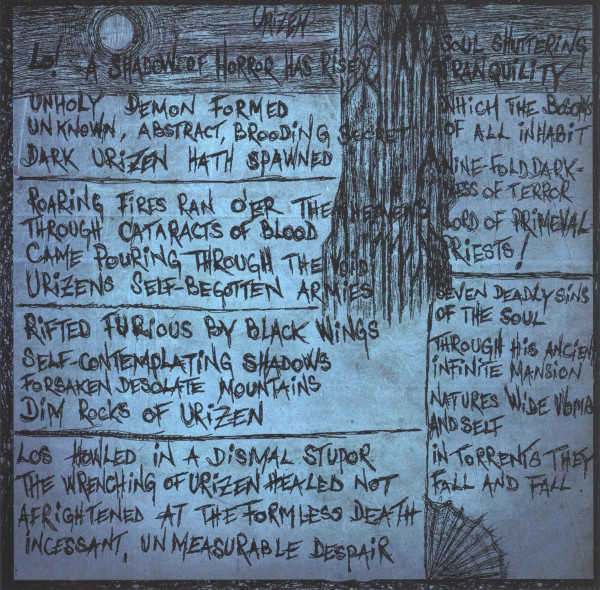 URIZEN
LO! A SHADOW OF HORROR HAS RISEN
UNHOLY DEMON FORMED
UNKNOWN, ABSTRACT, BROODING SECRET
DARK URIZEN HATH SPAWNED
ROARING FIRES RAN O'ER THE HEAVENS
THROUGH CATARACTS OF BLOOD
CAME POURING THROUGH THE VOID
URIZENS SELF-BEGOTTEN ARMIES
RIFTED FURIOUS BY BLACK WINGS
SELF-CONTEMPLATING SHADOWS
FORSAKEN DESOLATE MOUNTAINS
DIM ROCKS OF URIZEN
LOS HOWLED IN A DISMAL STUPOR
THE WRENCHING OF URIZEN HEALED NOT
AFRIGHTENED AT THE FORMLESS DEATH
INCESSANT, UNMEASURABLE DESPAIR
SOUL SHUTTERING
TRANQUILITY
WHICH THE BOSOMS
OF ALL INHABIT
NINE-FOLD DARK-
NESS OF TERROR
LORD OF PRIMEVAL
PRIESTS!
SEVEN DEADLY SINS
OF THE SOUL
THROUGH HIS ANCIENT
INFINITE MANSION
NATURES WIDE WOMB
AND SELF
IN TORRENTS THEY
FALL AND FALL.